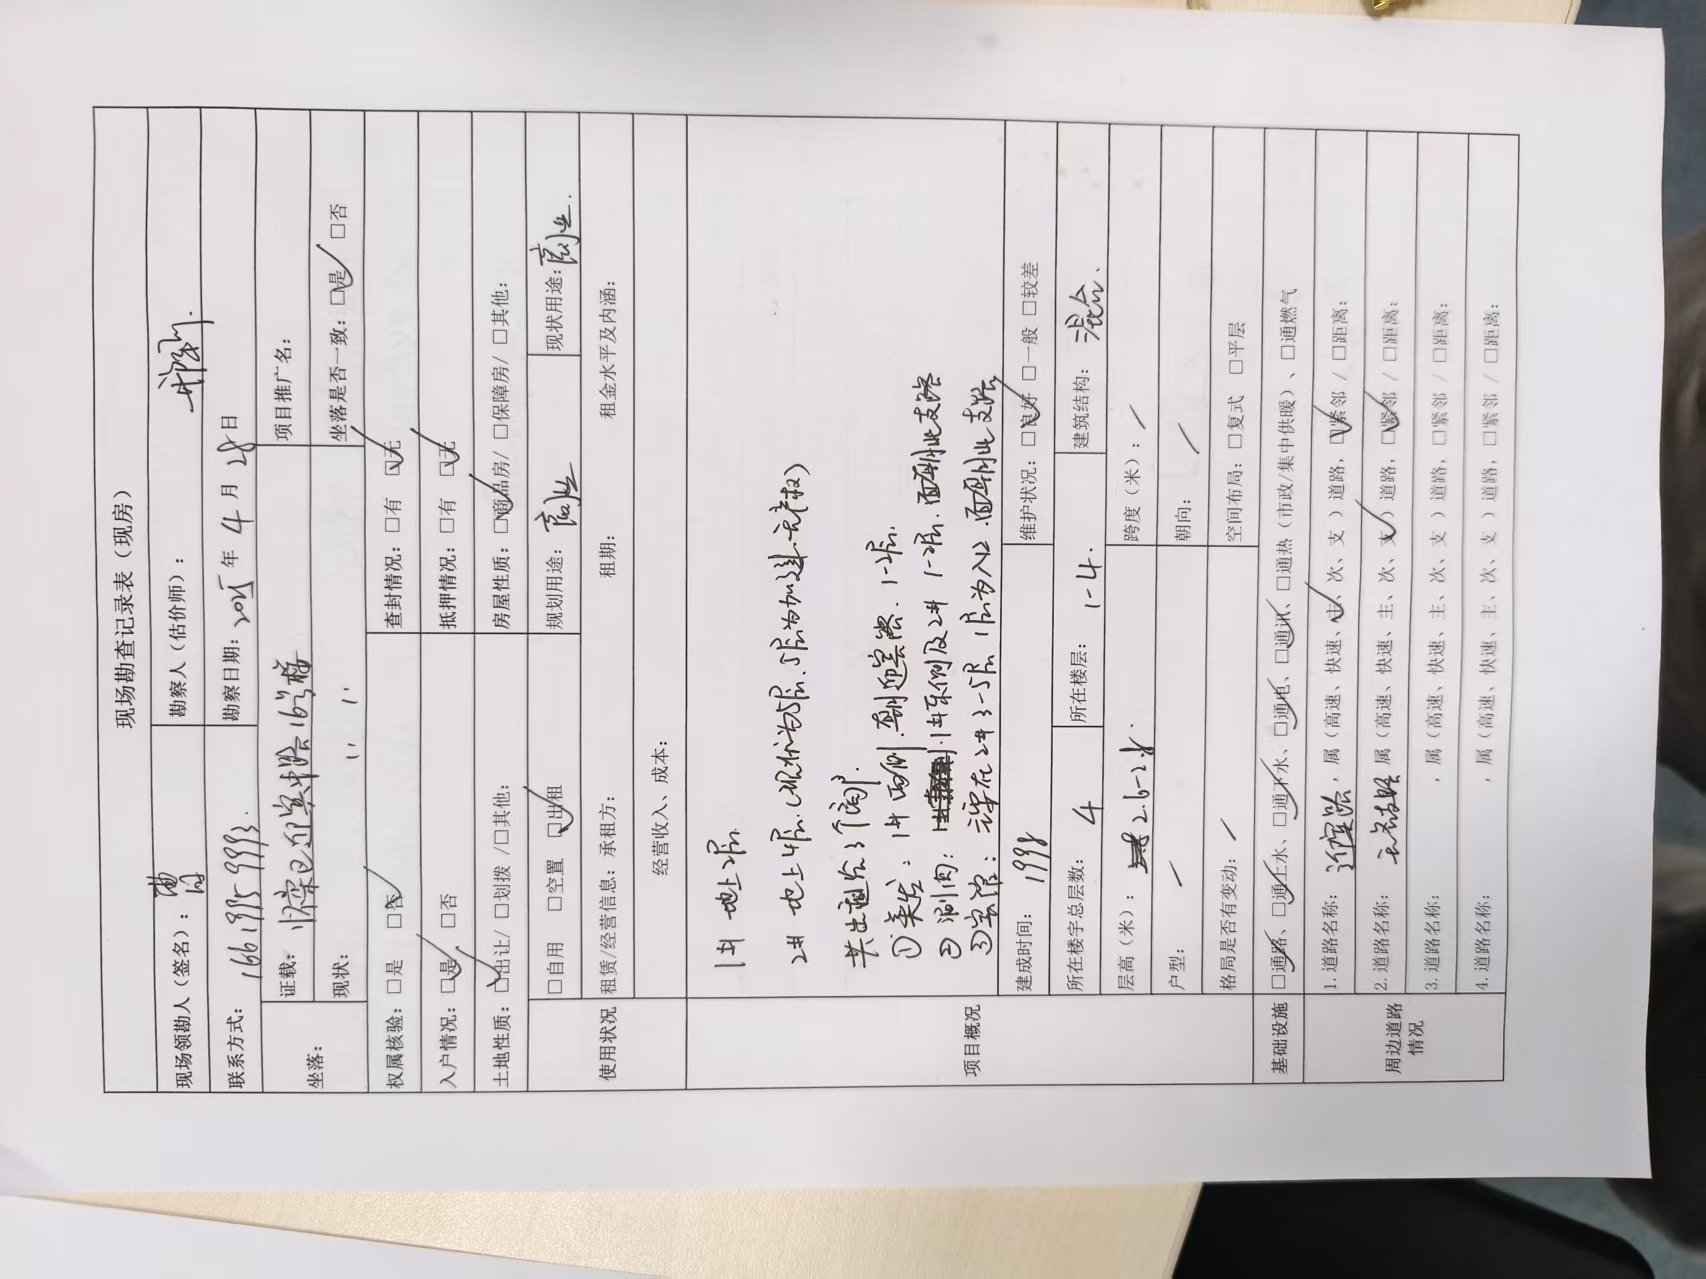 现场勘查记录表（现房）
现场领勘人（签名）： 曹 勘察人（估价师）：
联系方式： 16619959993. 勘察日期：2025年 4 月 28 日
坐落： 证载： 迎宾中路16号楼 项目推广名：
现状： 〃 〃 坐落是否一致：☑是 □否
权属核验：□是 ☑否 查封情况：□有 ☑无
入户情况：☑是 □否 抵押情况：□有 ☑无
土地性质：☑出让/ □划拨 /□其他： 房屋性质：☑商品房/ □保障房/ □其他：
使用状况 □自用 □空置 ☑出租 规划用途：商业 现状用途：商业.
租赁/经营信息：承租方： 租期： 租金水平及内涵：
经营收入、成本：
项目概况
1# 地上2层
2# 地上4层.(现状为5层.5层为加建.无产权)
共出租给3个商户.
① 1#西侧.面到迎宾路.1-2层.
②涮肉： 1#东侧及2# 1-2层.面到北支路
③宾馆： 在2# 3-5层 1层为入口.面到北支路
建成时间： 1998 维护状况：☑良好 □一般 □较差
所在楼宇总层数： 4 所在楼层： 1-4. 建筑结构： 混合.
层高（米）： 2.6-2.8. 跨度（米）： /
户型： / 朝向： /
格局是否有变动： / 空间布局：□复式 □平层
基础设施 ☑通路、☑通上水、☑通下水、☑通电、☑通讯、□通热（市政/集中供暖）、□通燃气
周边道路情况
1.道路名称： 迎宾路 ，属（高速、快速、主✓、次、支 ）道路，☑紧邻 / □距离：
2.道路名称： 无名支路 属（高速、快速、主、次、支✓）道路，☑紧邻 / □距离：
3.道路名称： ，属（高速、快速、主、次、支 ）道路，□紧邻 / □距离：
4.道路名称： ，属（高速、快速、主、次、支 ）道路，□紧邻 / □距离：